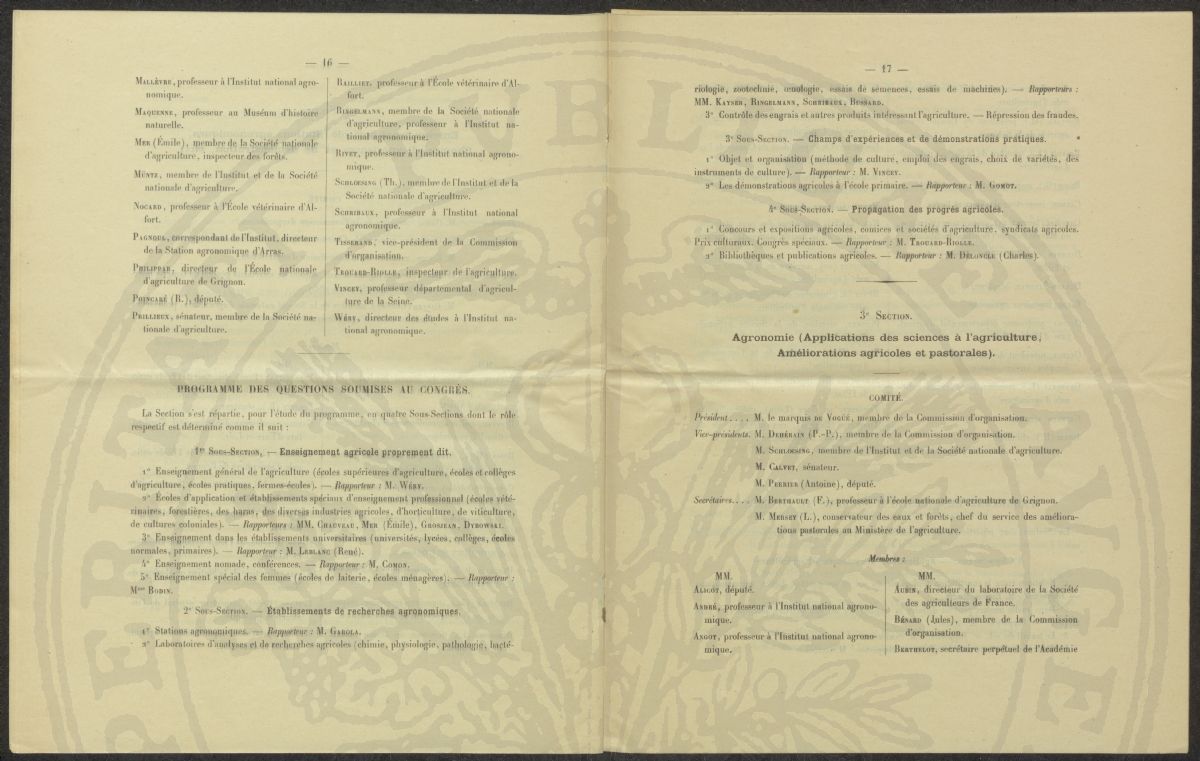 — 16 —
MALLÈVRE, professeur à l'Institut national agro-
nomique.
MAQUENNE, professeur au Muséum d'histoire
naturelle.
MER (Émile), membre de la Société nationale
d'agriculture, inspecteur des forêts.
MÜNTZ, membre de l'Institut et de la Société
nationale d'agriculture.
NOCARD, professeur à l'École vétérinaire d'Al-
fort.
PAGNOUL, correspondant de l'Institut, directeur
de la Station agronomique d'Arras.
PHILIPPAR, directeur de l'École nationale
d'agriculture de Grignon.
POINCARÉ (R.), député.
PRILLIEUX, sénateur, membre de la Société na-
tionale d'agriculture.
RAILLIET, professeur à l'École vétérinaire d'Al-
fort.
RINGELMANN, membre de la Société nationale
d'agriculture, professeur à l'Institut na-
tional agronomique.
RIVET, professeur à l'Institut national agrono-
mique.
SCHLOESING (Th.), membre de l'Institut et de la
Société nationale d'agriculture.
SCHRIBAUX, professeur à l'Institut national
agronomique.
TISSERAND, vice-président de la Commission
d'organisation.
TROUARD-RIOLLE, inspecteur de l'agriculture.
VINCEY, professeur départemental d'agricul-
ture de la Seine.
WÉRY, directeur des études à l'Institut na-
tional agronomique.
PROGRAMME DES QUESTIONS SOUMISES AU CONGRÈS.
La Section s'est répartie, pour l'étude du programme, en quatre Sous-Sections dont le rôle
respectif est déterminé comme il suit :
1re SOUS-SECTION. — Enseignement agricole proprement dit.
1° Enseignement général de l'agriculture (écoles supérieures d'agriculture, écoles et collèges
d'agriculture, écoles pratiques, fermes-écoles). — Rapporteur : M. WÉRY.
2° Écoles d'application et établissements spéciaux d'enseignement professionnel (écoles vété-
rinaires, forestières, des haras, des diverses industries agricoles, d'horticulture, de viticulture,
de cultures coloniales). — Rapporteurs : MM. CHAUVEAU, MER (Émile), GROSJEAN, DYBOWSKI.
3° Enseignement dans les établissements universitaires (universités, lycées, collèges, écoles
normales, primaires). — Rapporteur : M. LEBLANC (René).
4° Enseignement nomade, conférences. — Rapporteur : M. COMON.
5° Enseignement spécial des femmes (écoles de laiterie, écoles ménagères). — Rapporteur :
Mme BODIN.
2e SOUS-SECTION. — Établissements de recherches agronomiques.
1° Stations agronomiques. — Rapporteur : M. GAROLA.
2° Laboratoires d'analyses et de recherches agricoles (chimie, physiologie, pathologie, bacté-
— 17 —
riologie, zootechnie, œnologie, essais de semences, essais de machines). — Rapporteurs :
MM. KAYSER, RINGELMANN, SCHRIBAUX, BUSSARD.
3° Contrôle des engrais et autres produits intéressant l'agriculture. — Répression des fraudes.
3e SOUS-SECTION. — Champs d'expériences et de démonstrations pratiques.
1° Objet et organisation (méthode de culture, emploi des engrais, choix de variétés, des
instruments de culture). — Rapporteur : M. VINCEY.
2° Les démonstrations agricoles à l'école primaire. — Rapporteur : M. GOMOT.
4e SOUS-SECTION. — Propagation des progrès agricoles.
1° Concours et expositions agricoles, comices et sociétés d'agriculture, syndicats agricoles.
Prix culturaux. Congrès spéciaux. — Rapporteur : M. TROUARD-RIOLLE.
2° Bibliothèques et publications agricoles. — Rapporteur : M. DELONCLE (Charles).
3e SECTION.
Agronomie (Applications des sciences à l'agriculture,
Améliorations agricoles et pastorales).
COMITÉ.
Président.... M. le marquis DE VOGÜÉ, membre de la Commission d'organisation.
Vice-présidents. M. DEHÉRAIN (P.-P.), membre de la Commission d'organisation.
M. SCHLOESING, membre de l'Institut et de la Société nationale d'agriculture.
M. CALVET, sénateur.
M. PERRIER (Antoine), député.
Secrétaires.... M. BERTHAULT (F.), professeur à l'école nationale d'agriculture de Grignon.
M. MERSEY (L.), conservateur des eaux et forêts, chef du service des améliora-
tions pastorales au Ministère de l'agriculture.
Membres :
MM.
ALICOT, député.
ANDRÉ, professeur à l'Institut national agrono-
mique.
ANGOT, professeur à l'Institut national agrono-
mique.
MM.
AUBIN, directeur du laboratoire de la Société
des agriculteurs de France.
BÉNARD (Jules), membre de la Commission
d'organisation.
BERTHELOT, secrétaire perpétuel de l'Académie